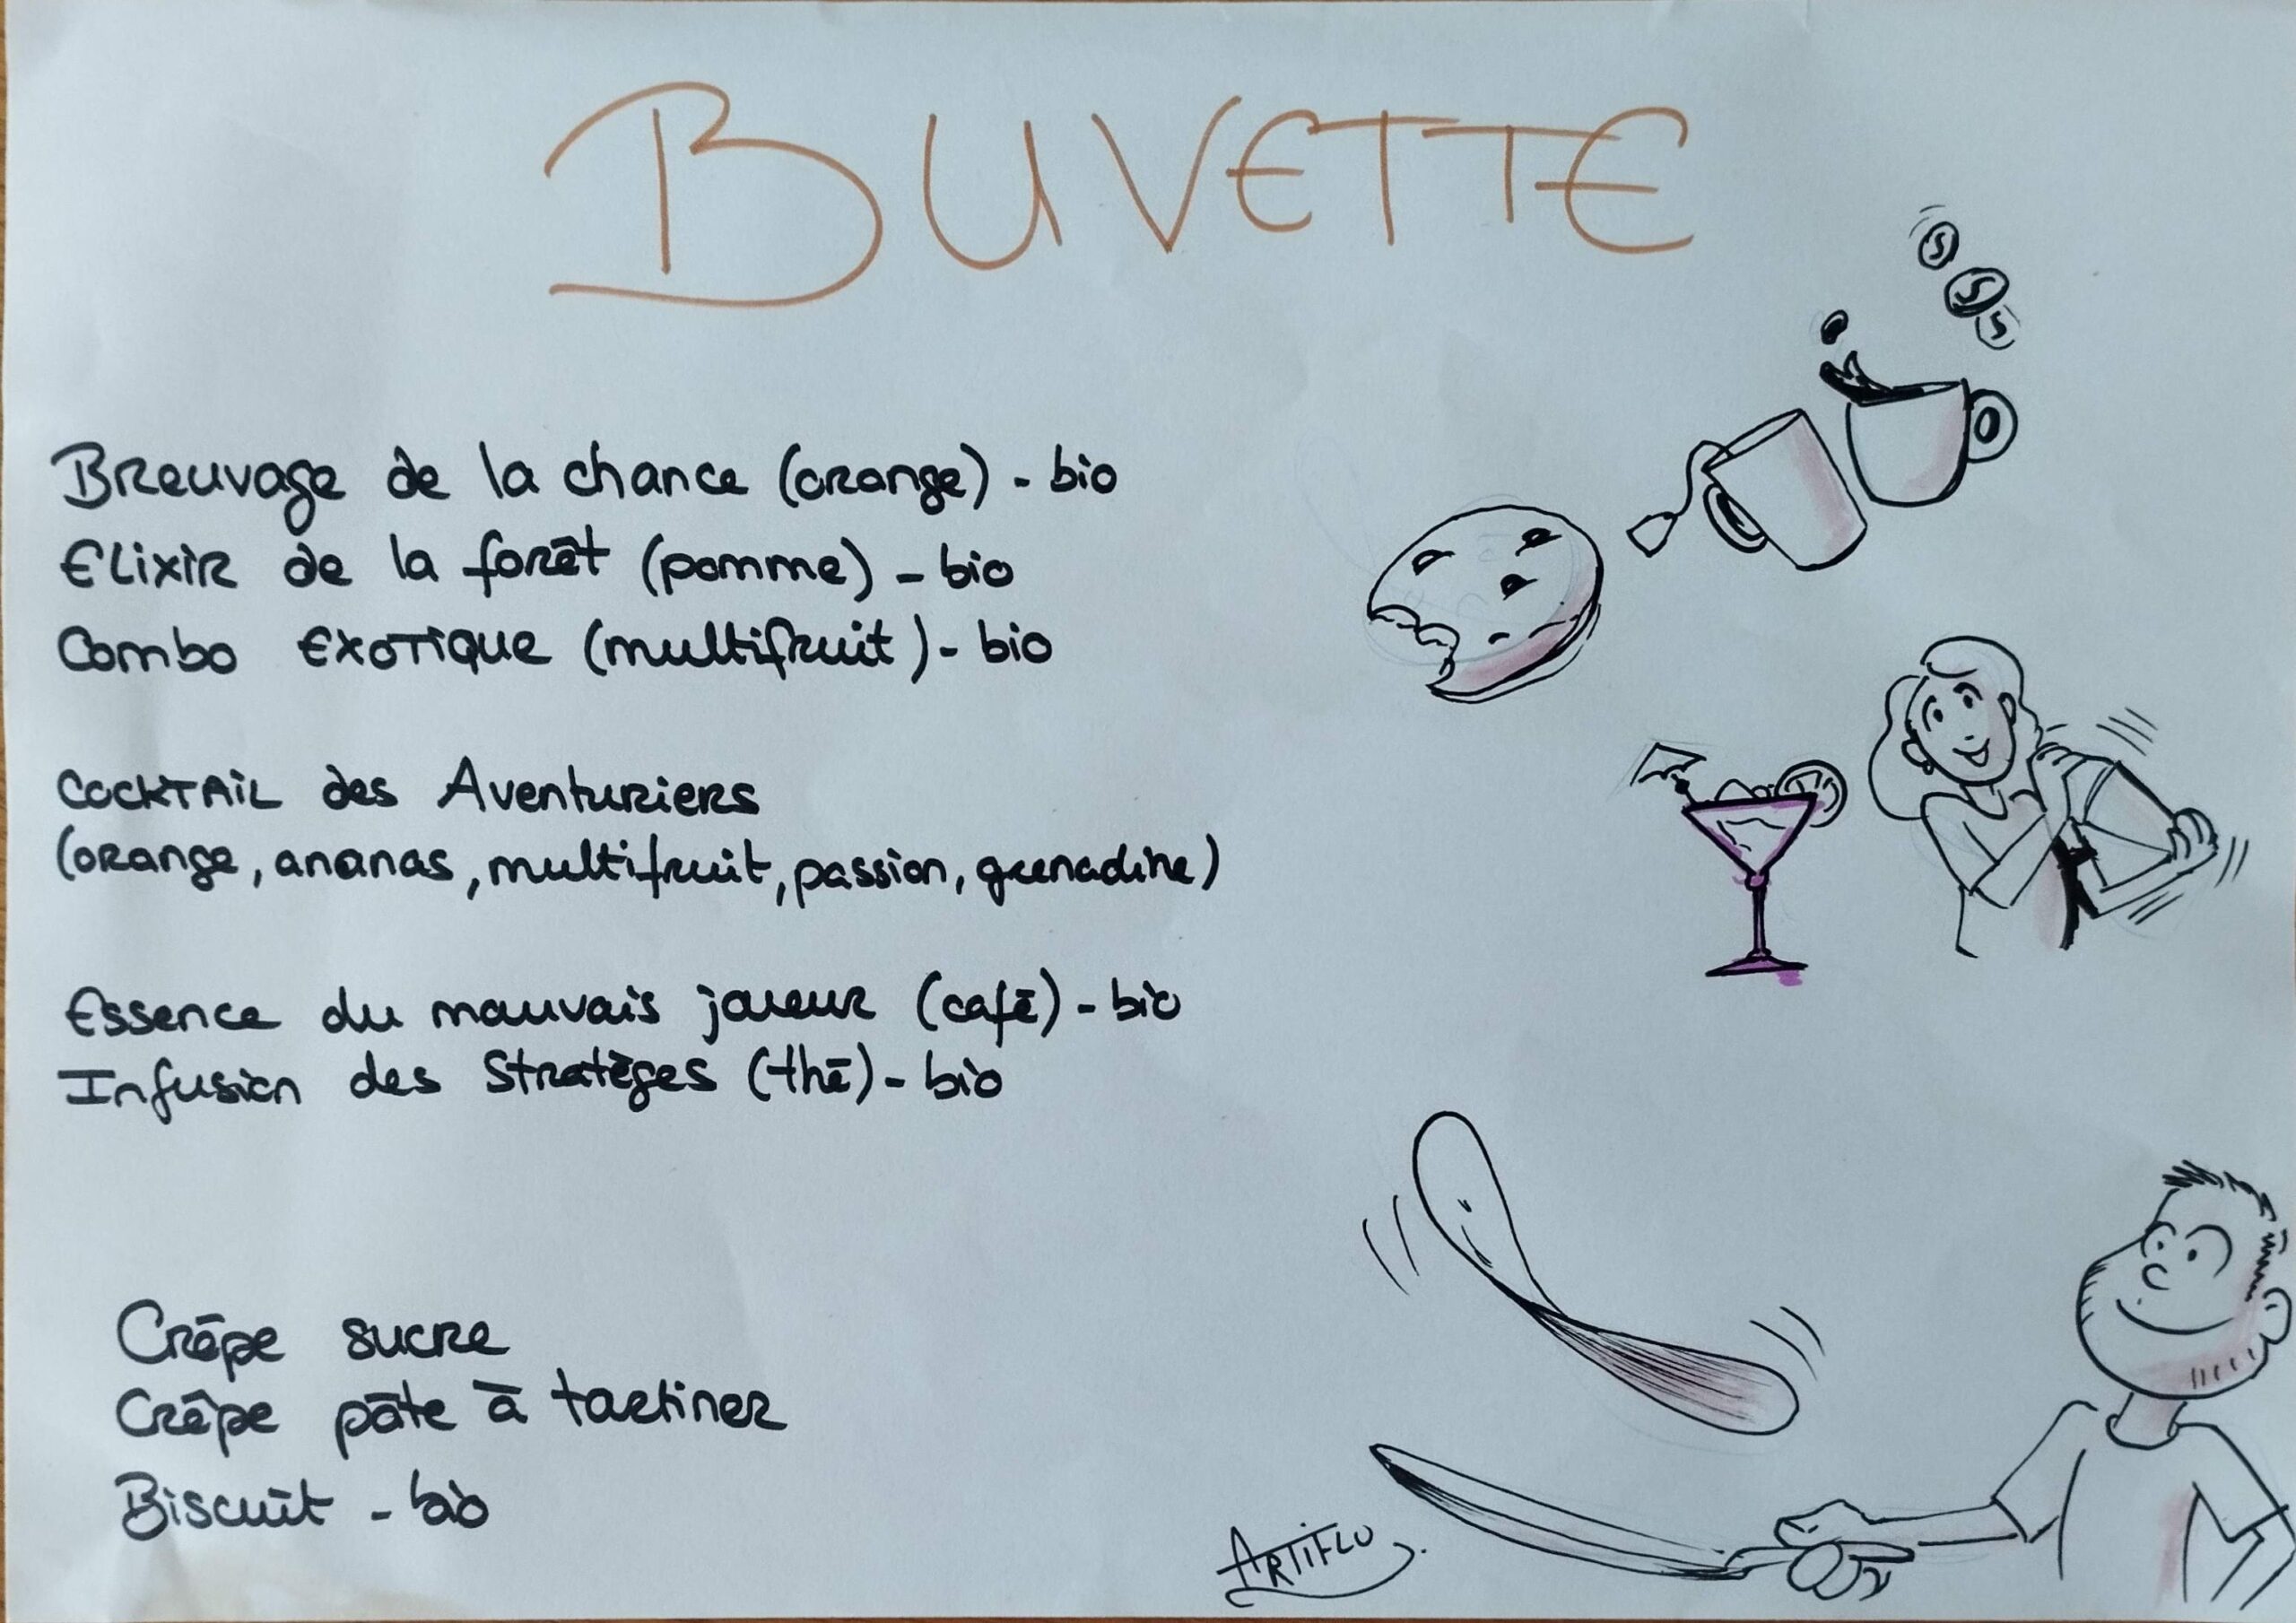 BUVETTE
Breuvage de la chance (orange) - bio
Elixir de la forêt (pomme) - bio
Combo Exotique (multifruit) - bio
Cocktail des Aventuriers
(orange, ananas, multifruit, passion, grenadine)
Essence du mauvais joueur (café) - bio
Infusion des Stratèges (thé) - bio
Crêpe sucre
Crêpe pâte à tartiner
Biscuit - bio
ARTIFLO